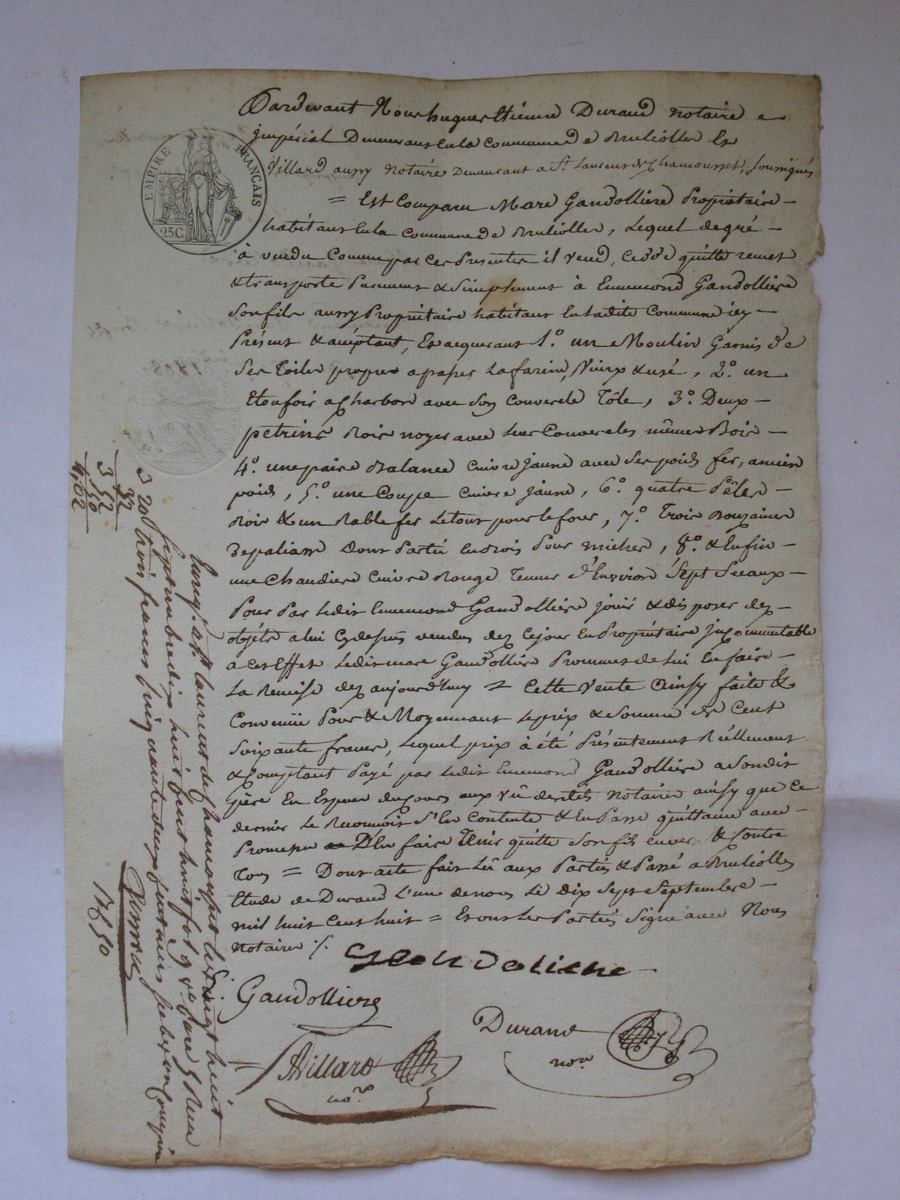 EMPIRE FRANÇAIS
25C.
Pardevant Nous hugues Etienne Durand notaire
Impérial Demeurant En la Commune de Bruliolles Et
Villard aussy Notaire Demeurant a St. Laurent de Chamousset, soussignés
= Est Comparu Marc Gandollière Propriétaire –
habitant En la Commune de Bruliolles, Lequel de gré –
à vendu Comme par ces Presentes il vend, cedde quitte remet
& transporte Purement & Simplement à Ennemond Gandollière
Son fils aussy Propriétaire habitant En ladite Commune icy –
Présent & acceptant, Et acquerant 1.° un Moulin Garnis de
Ses Toiles propres a passer La farine, Vieux & usé, 2.° un
Etoufoir a Charbon avec Son Couvercle Tôle, 3.° Deux –
petrins Bois noyer avec leur Couvercles même Bois –
4.° une paire Balance Cuivre jaune avec Ses poids fer, ancien
poids, 5.° une Coupe Cuivre jaune, 6.° quatre Pêles –
Bois & un Rable fer Le tout pour le four, 7.° Trois Douzaines
de paliasse Dont Partie En Bois Pour miches, 8.° & Enfin –
une Chaudiere Cuivre Rouge Tenant d'Environ Sept Seaux –
Pour Par Ledit Ennemond Gandollière jouir & disposer des –
objéts a lui Cy dessus vendus dez ce jour En Propriétaire Incommutable
à cet Effet Ledit marc Gandollière Promet de lui En faire –
La Remise dez aujourd'huy = Cette Vente Ainsy faite &
Convenüe Pour & Moyennant Le prix & Somme de Cent
Soixante francs, Lequel prix à été Présentement Réellement
& Comptant Payé par Ledit Ennemond Gandollière a Son dit
Père En Especes du Cours aux Vü desdits Notaire ainsy que Ce
dernier Le Reconnoit S'En Contente & En Passe quittance avec
Promesse D'En faire Tenir quitte Son fils Envers & Contre
Tous = Dont acte fait Lû aux Parties & Passé a Brulïolles
Etude de Durand L'un de nous Le Dix Sept Septembre –
mil huit Cent huit = Et ont Les Parties Signé avec Nous
Notaire ./.
Gandoliere
Gandolliere
Durand
nore
Villard
nore
Enregé. a St. Laurent de Chamousset le vingt huit
Septembre dix huit cent huit fol
trois francs cinquante deux centimes
3 52
3 52
50
4,02